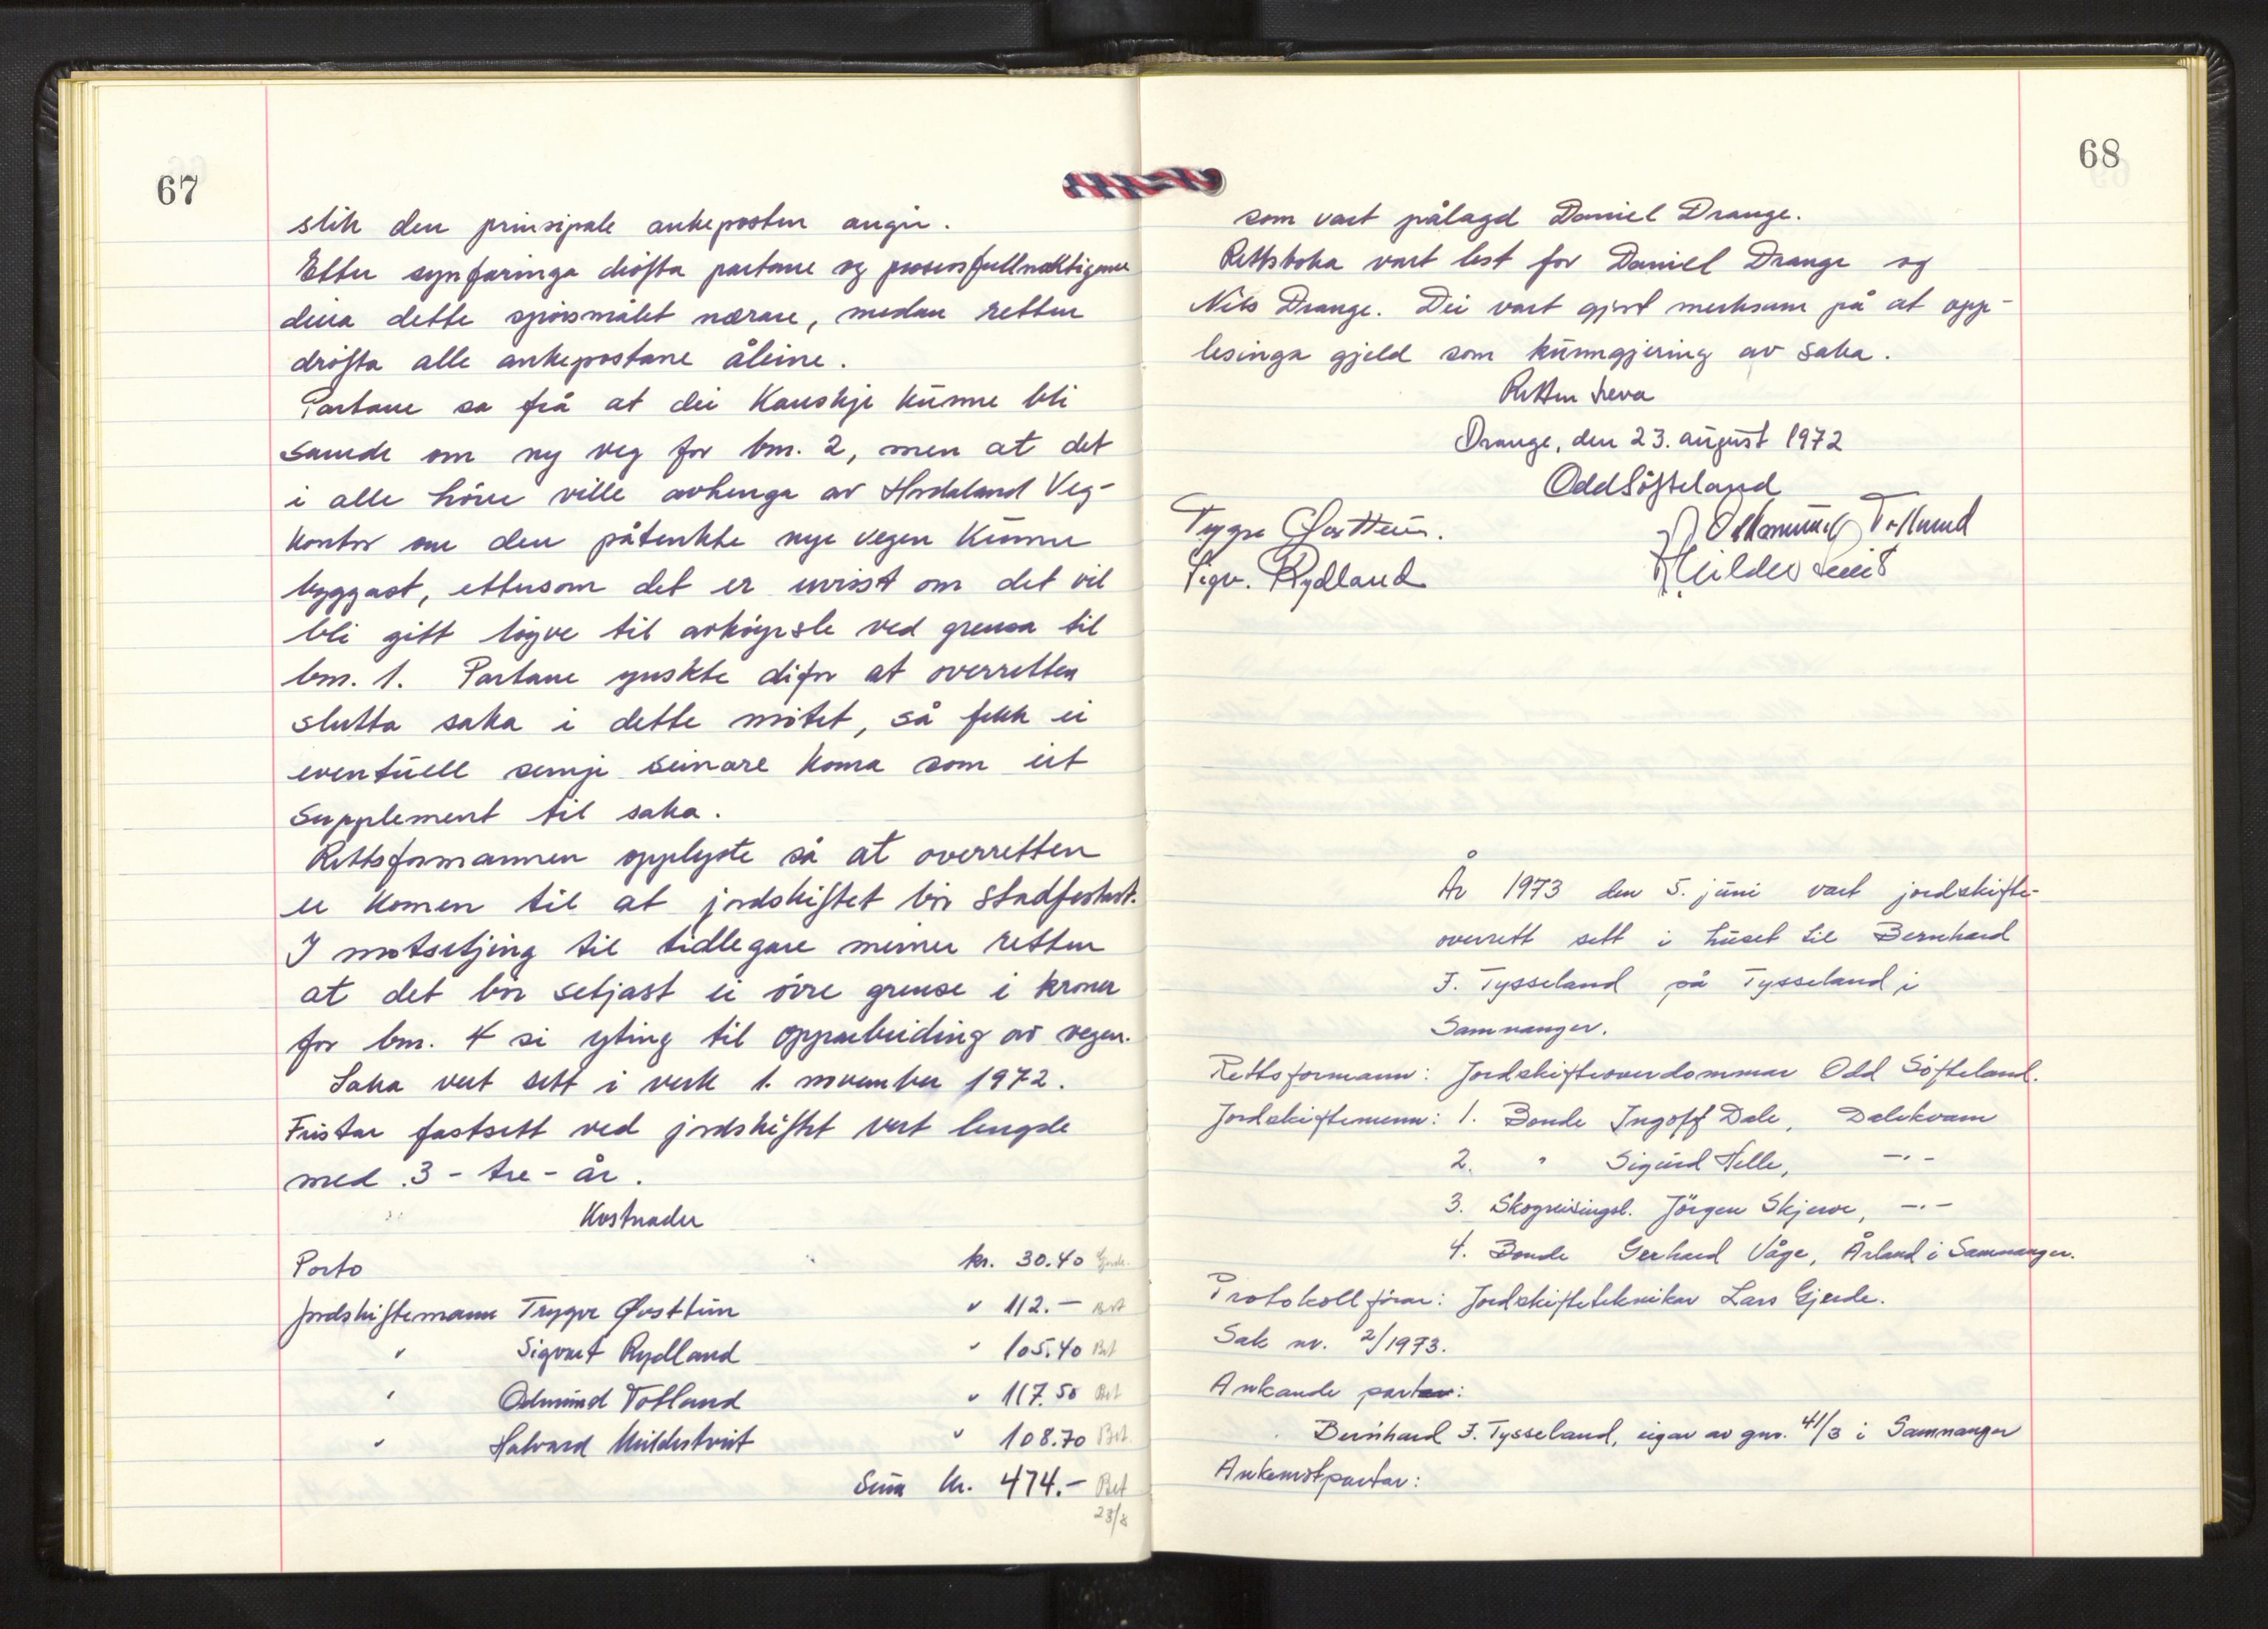 67
slik den prinsipale ankeposten angir.
Etter synfaringa drøfta partane og prosessfullmektigane
deira dette spørsmålet nærare, medan retten
drøfta alle ankepostane åleine.
Partane sa frå at dei kanskje kunne bli
samde om ny veg for bm. 2, men at det
i alle høve ville avhenga av Hordaland Veg-
kontor om den påtenkte nye vegen kunne
byggast, ettersom det er uvisst om det vil
bli gitt løyve til avkøyrsle ved grensa til
bm. 1. Partane ynskte difor at overretten
slutta saka i dette møtet, så fekk ei
eventuell semje seinare koma som eit
supplement til saka.
Rettsformannen opplyste så at overretten
er komen til at jordskiftet bør stadfestast.
I motsetjing til tidlegare meiner retten
at det bør setjast ei øvre grense i kroner
for bm. 4 si yting til opparbeiding av vegen.
Saka vert sett i verk 1. november 1972.
Fristar fastsett ved jordskiftet vert lengde
med 3 - tre - år.
Kostnader
Porto kr. 30.40
Jordskiftemann Trygve Øvsttun " 112.- Bet
" Sigvart Rydland " 105.40 Bet
" Odmund Totland " 117.50 Bet
" Halvard Mildestveit " 108.70 Bet.
Sum kr. 474.- Bet
23/8
68
som vart pålagd Daniel Drange.
Rettsboka vart lest for Daniel Drange og
Nils Drange. Dei vart gjort merksam på at opp-
lesinga gjeld som kunngjering av saka.
Retten heva
Drange, den 23. august 1972
Odd Söfteland
Trygve Øvsttun. Odmund Totland
Sigv. Rydland
År 1973 den 5. juni vart jordskifte-
overrett sett i huset til Bernhard
J. Tysseland på Tysseland i
Samnanger.
Rettsformann: Jordskifteoverdommar Odd Söfteland.
Jordskiftemenn: 1. Bonde Ingolf Dale, Dalekvam
2. " Sigurd Helle, -"-
3. Skogreisingsl. Jörgen Skjerve, -"-
4. Bonde Gerhard Våge, Årland i Samnanger.
Protokollförar: Jordskifteteknikar Lars Gjerde.
Sak nr. 2/1973.
Ankande part:
Bernhard J. Tysseland, eigar av gnr. 41/3 i Samnanger
Ankemotpartar: